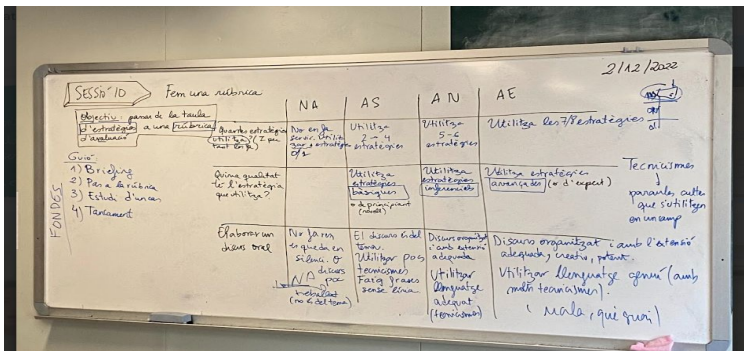 2/12/2022
SESSIÓ 10
Fem una rúbrica
Objectiu: passar de la taula
d'estratègies a una rúbrica
d'avaluació
Guió:
1) Briefing
2) Pas a la rúbrica
3) Estudi d'un cas
4) Tancament
FONDES
NA
AS
AN
AE
Quantes estratègies
utilitza?
No en fa
servir
0/1
Utilitza
2-4
estratègies
Utilitza
5-6
estratègies
Utilitza les 7/8 estratègies
Quina qualitat
té l'estratègia
que utilitza?
Utilitza
estratègies
bàsiques
o de principiant
Utilitza
estratègies
inferencials
Utilitza estratègies
avançades (o d'expert)
Elaborar un
discurs oral
No fa res
es queda en
silenci. O
discurs
poc
treballat
(no és del tema)
El discurs és del
tema.
Utilitzar pocs
tecnicismes
Faig frases
Discurs organitzat
i amb extensió
adequada
Utilitzar
llenguatge
adequat
(tecnicismes)
Discurs organitzat i amb l'extensió
adequada, creatiu, potent.
Utilitzar llenguatge genuí (amb
molts tecnicismes).
Tecnicismes
paraules cultes
que s'utilitzen
en un camp